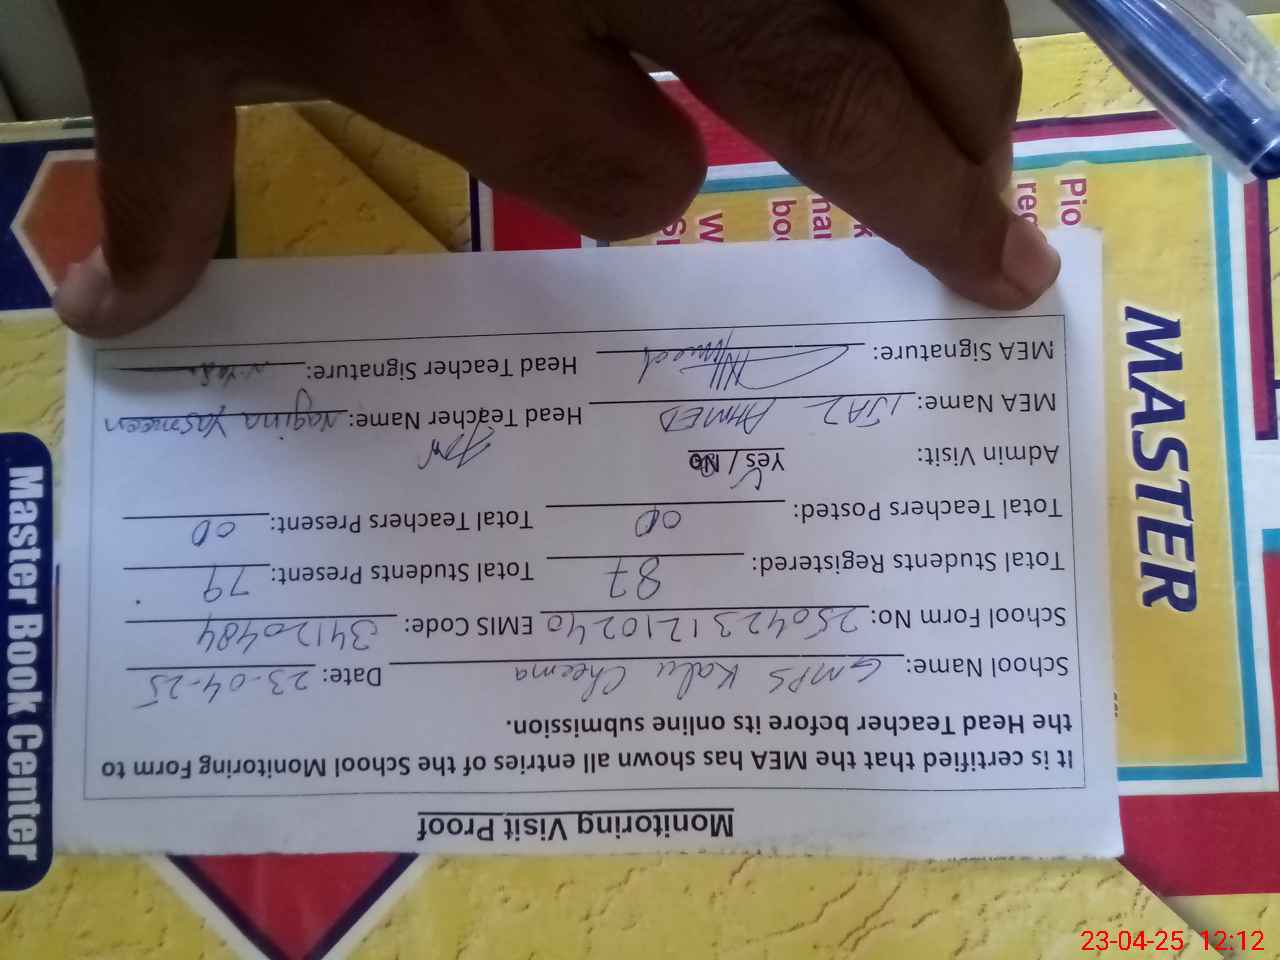 Monitoring Visit Proof
It is certified that the MEA has shown all entries of the School Monitoring Form to
the Head Teacher before its online submission.
School Name: GMPS Kalu Cheema Date: 23-04-25
School Form No: 2504231210240 EMIS Code: 34120484
Total Students Registered: 87 Total Students Present: 79
Total Teachers Posted: 00 Total Teachers Present: 00
Admin Visit: Yes / No
MEA Name: IJAZ AHMED Head Teacher Name: Nagina Yasmeen
MEA Signature: Head Teacher Signature:
MASTER
Master Book Center
Pio
rec
boo
W
23-04-25 12:12